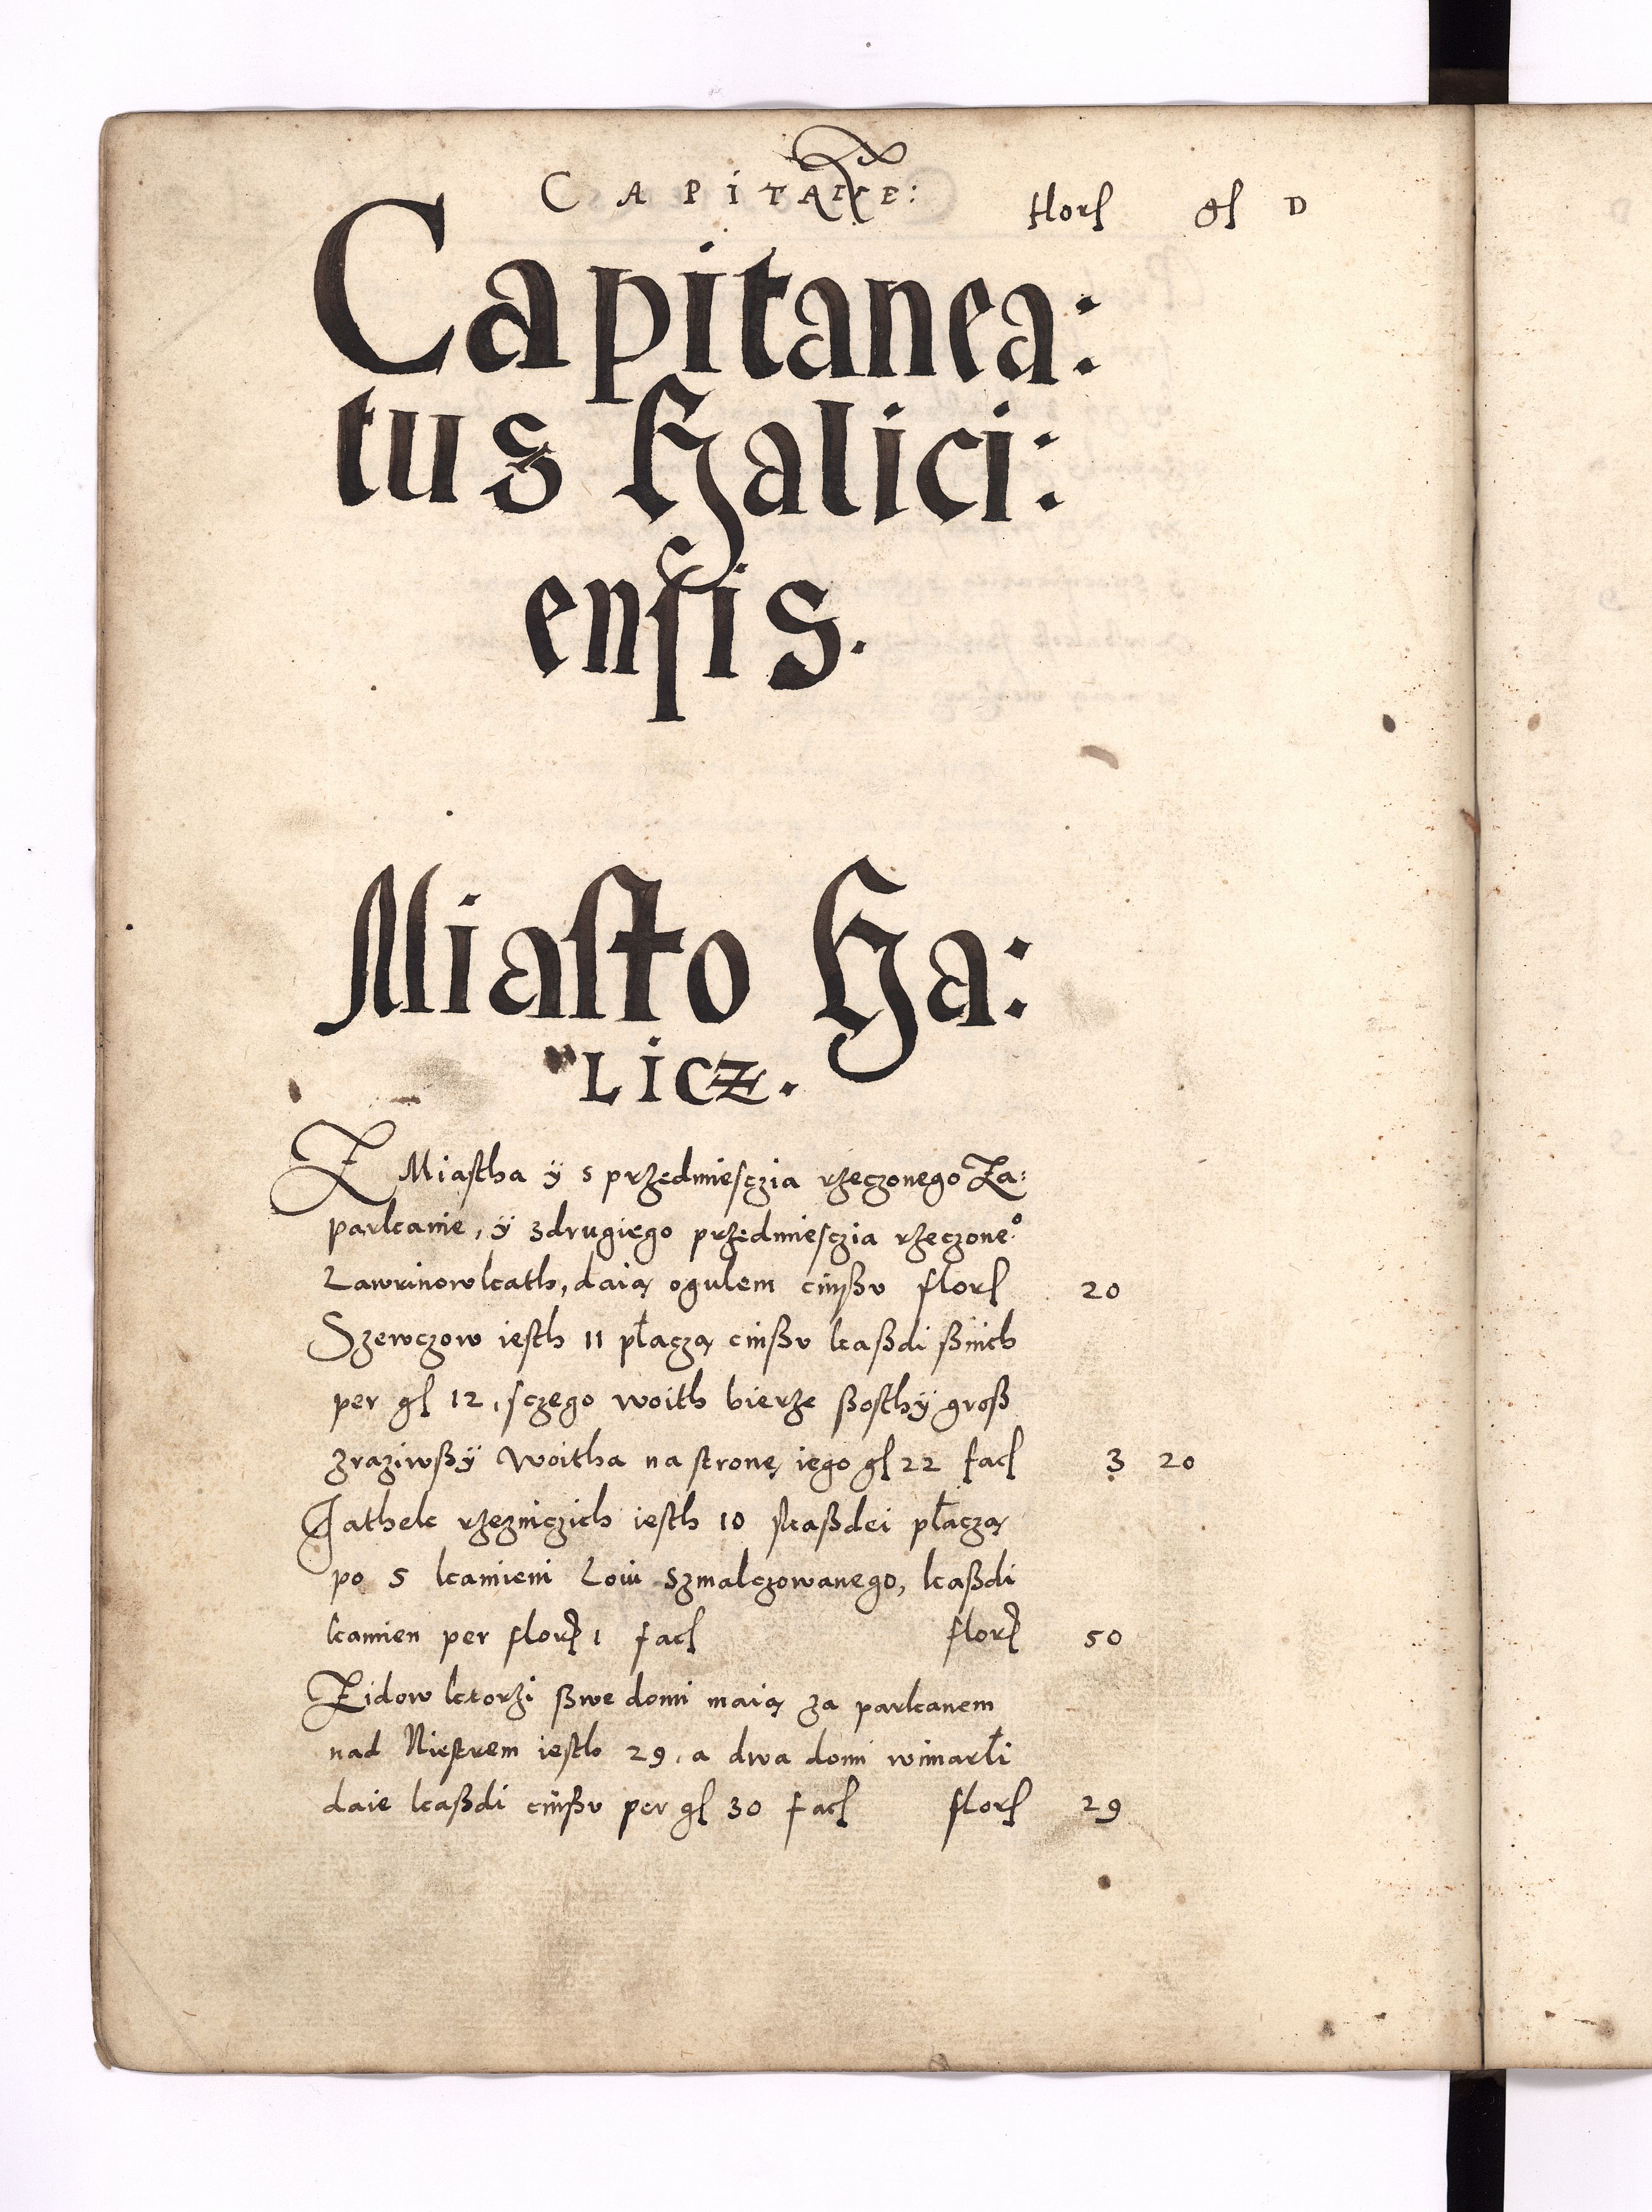 CAPITANE: florſ gſ D
Capitanea:
tus Halici:
enſis.
Miaſto Ha:
LICZ.
Z Miaſtha ÿ s przedmieſczia rzeczonego Za:
parkanie, ÿ zdrugiego przedmieſczia rzeczone°
Lawrinowkath, daią ogulem cinßv florſ 20
Szewczow ieſth 11 płaczą cinßv kaßdi ßnich
per gſ 12, ſczego woith bierze ßoſthÿ groß
zraziwßÿ Woitha na ſtronę iego gſ 22 facſ 3 20
Jathek rzezniczich ieſth 10 ſkaßdei płaczą
po 5 kamieni Loiu Szmalczowanego, kaßdi
kamien per florſ 1 facſ florſ 50
Zidow ktorzi ßwe domi maią za parkanem
nad Nieſtrem ieſth 29, a dwa domi wimarłi
daie kaßdi cinßv per gſ 30 facſ florſ 29